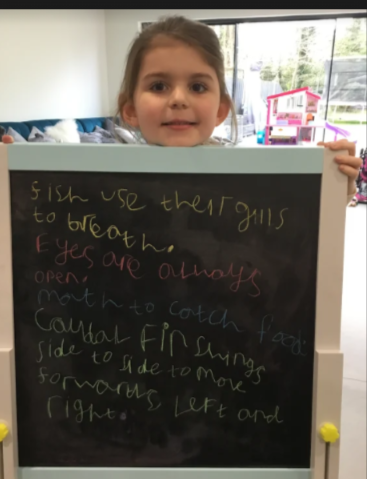 fish use their gills
to breath.
Eyes are always
open.
mouth to catch food
Caudal Fin swings
side to side to move
forwards, left and
right.